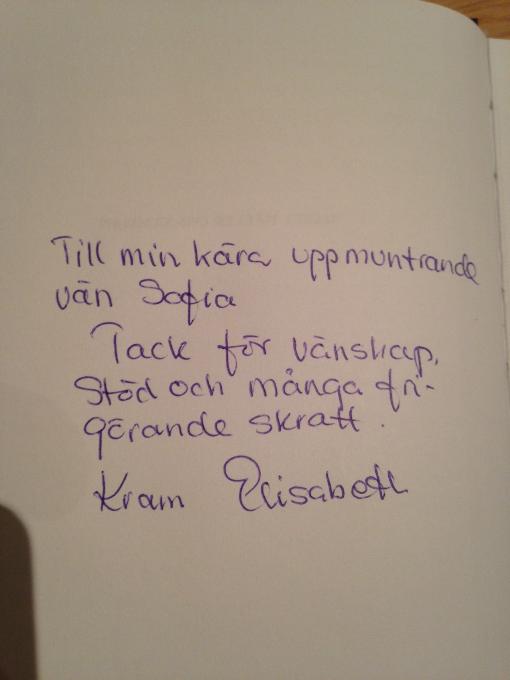 Till min kära uppmuntrande
vän Sofia
Tack för vänskap,
stöd och många fri-
görande skratt.
Kram Elisabeth